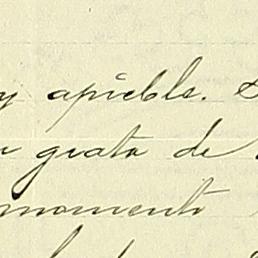 y apieble.
grata de
momento